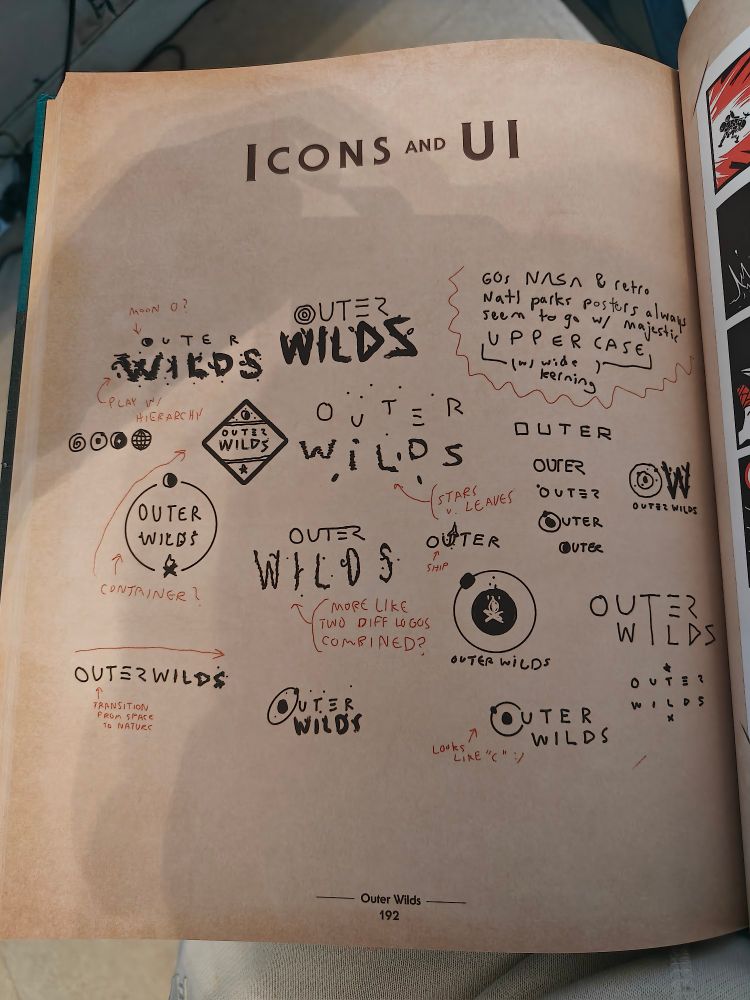 ICONS AND UI
60s NASA & retro
Natl parks posters always
seem to go w/ majestic
UPPERCASE
(w/ wide
kerning)
MOON O?
OUTER
WILDS
PLAY W/
HIERARCHY
OUTER
WILDS
OUTER
WILDS
OUTER
WILDS
STARS
v. LEAVES
OUTER
OUTER
OUTER
OUTER
OUTER
OW
OUTER WILDS
OUTER
WILDS
CONTAINER?
OUTER
WILDS
MORE LIKE
TWO DIFF LOGOS
COMBINED?
OUTER
SHIP
OUTER WILDS
OUTER
WILDS
OUTER
WILDS
OUTERWILDS
TRANSITION
FROM SPACE
TO NATURE
OUTER
WILDS
OUTER
WILDS
LOOKS
LIKE "C" :/
Outer Wilds
192